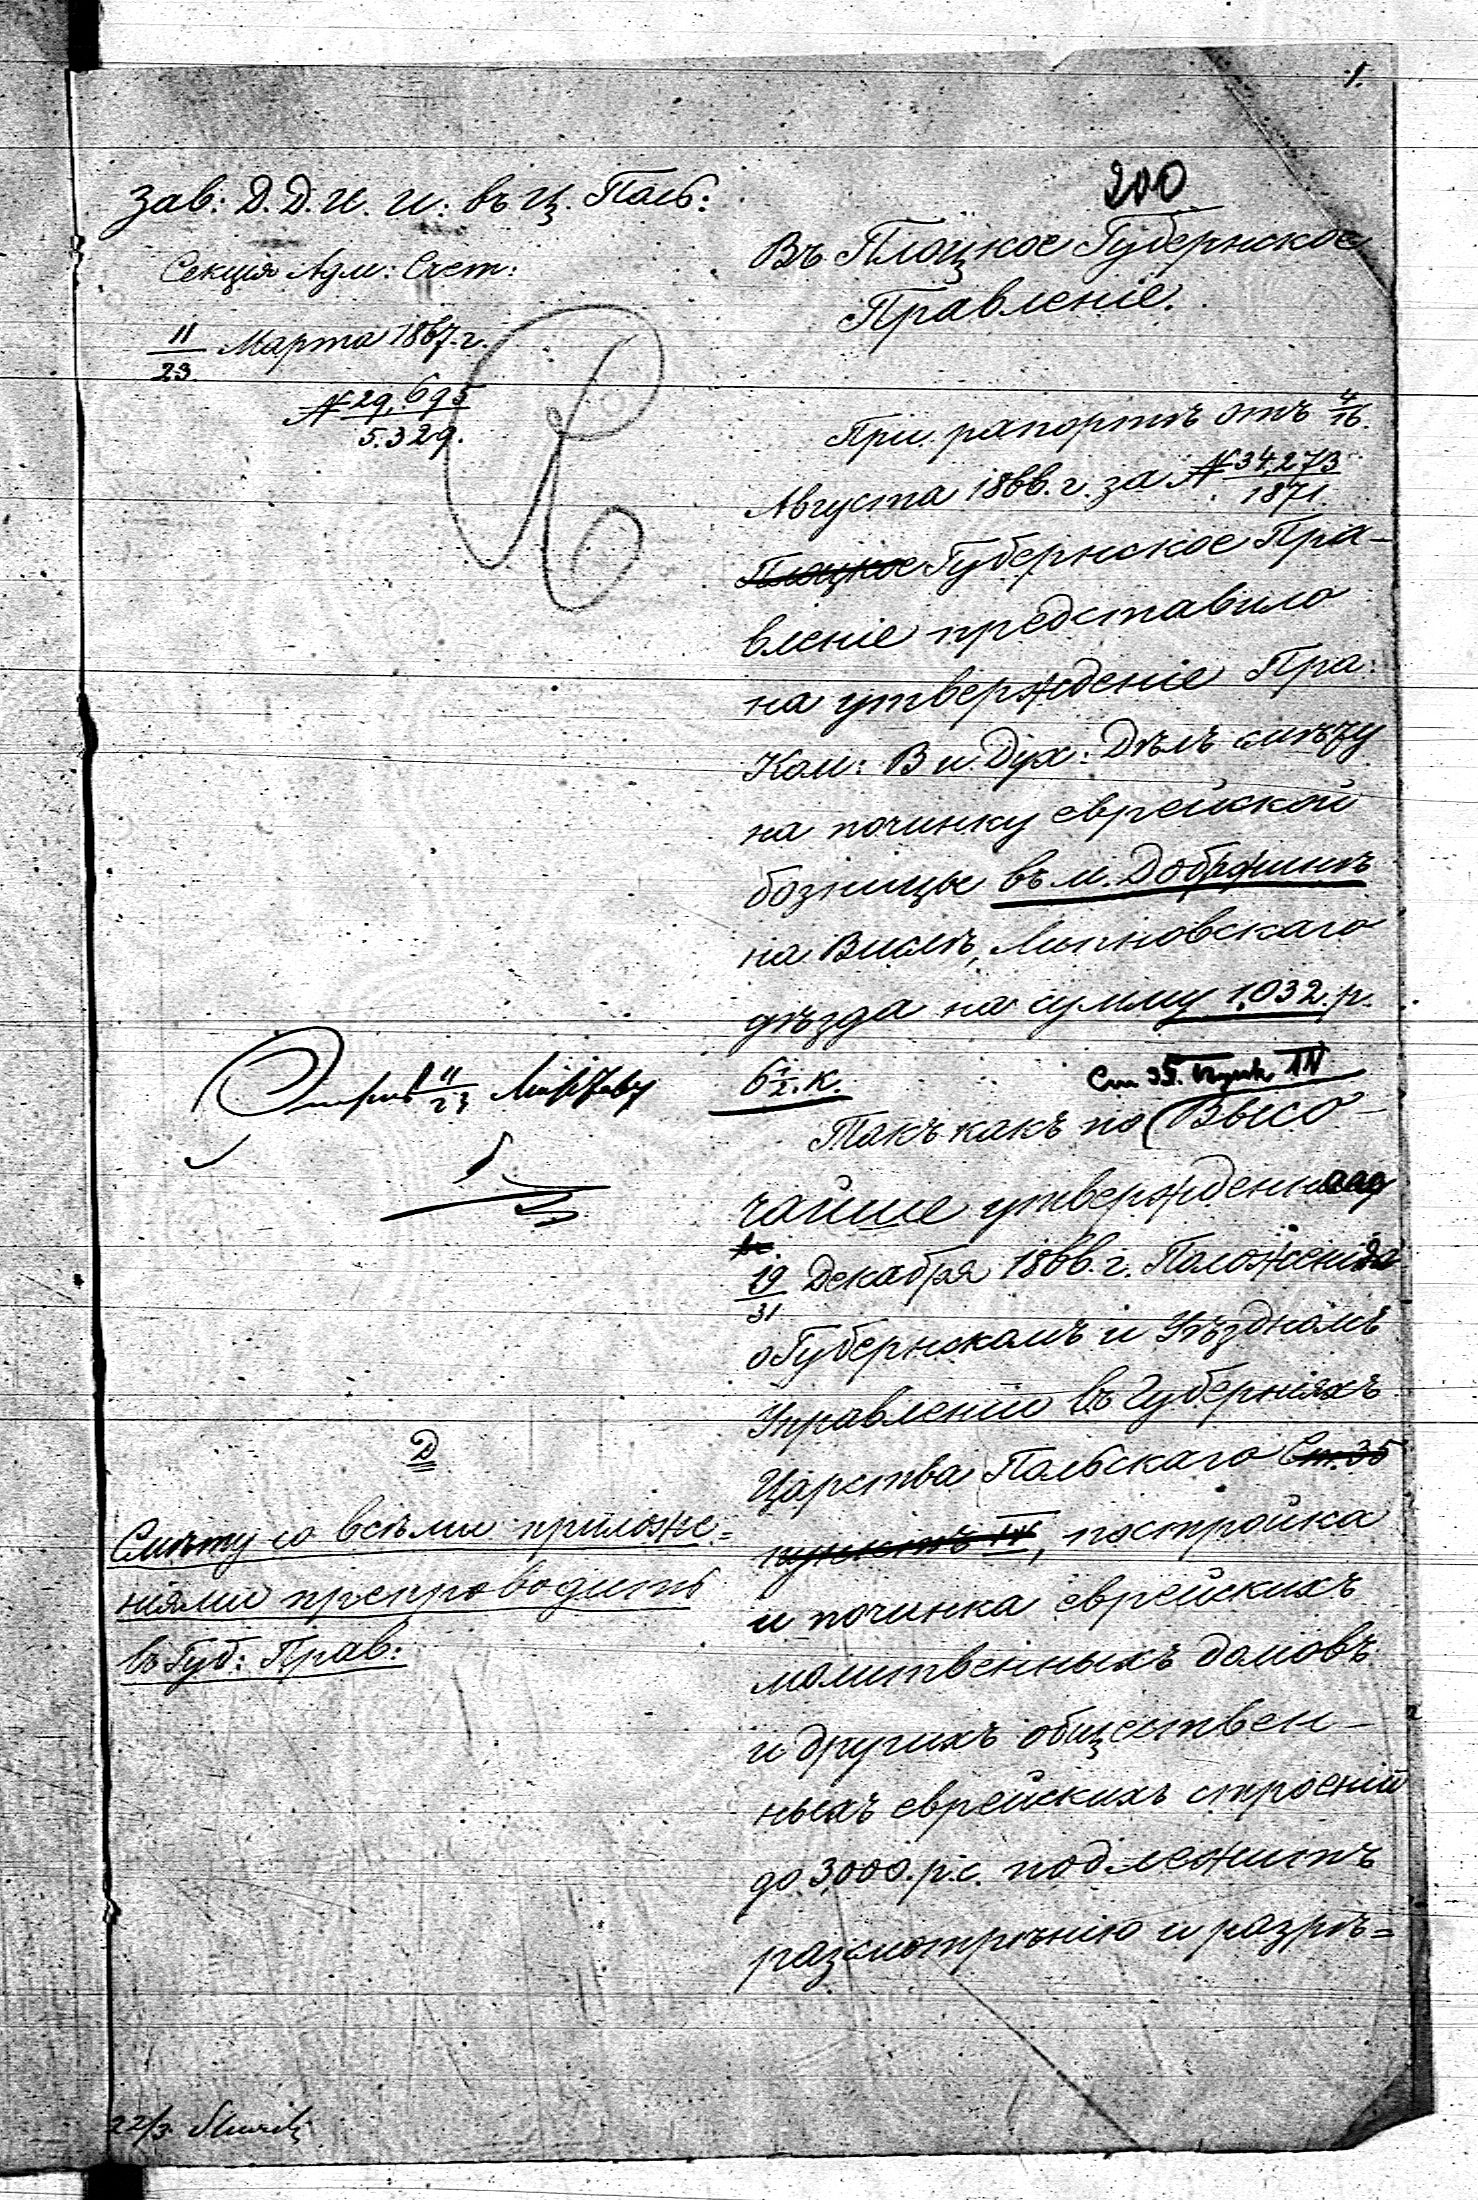 1.
200
Зав: Д. Д. И. И: въ Ц. Поль:
Секція Адм: Счет:
11/23 Марта 1867 г.
№ 29,695/5.329.
Въ Плоцкое Губернское
Правленіе.
При рапортѣ отъ 4/16.
Августа 1866. г. за № 34,273/1871
Плоцкое Губернское Пра-
вленіе представило
на утвержденіе Пра:
Ком: В и Дух: Дѣлъ смѣту
на починку еврейской
бозницы въ м. Добржинѣ
на Вислѣ, Липновскаго
уѣзда на сумму 1,032. р.
6½. к.
Ст 35. Пунк. IV
Такъ какъ по (Высо-
чайше утвержденн
19/31 Декабря 1866. г. Положенія
о Губернскомъ и Уѣздномъ
Управленіи въ Губерніяхъ
Царства Польскаго Ст. 35
пунктъ IV, постройка
и починка еврейскихъ
молитвенныхъ домовъ
и другихъ обществен-
ныхъ еврейскихъ строеній
до 3,000. р. с. подлежитъ
разсмотрѣнію и разрѣ=
11/23
Д
Смѣту со всѣми приложе=
ніями препроводить
въ Губ: Прав:
22/3